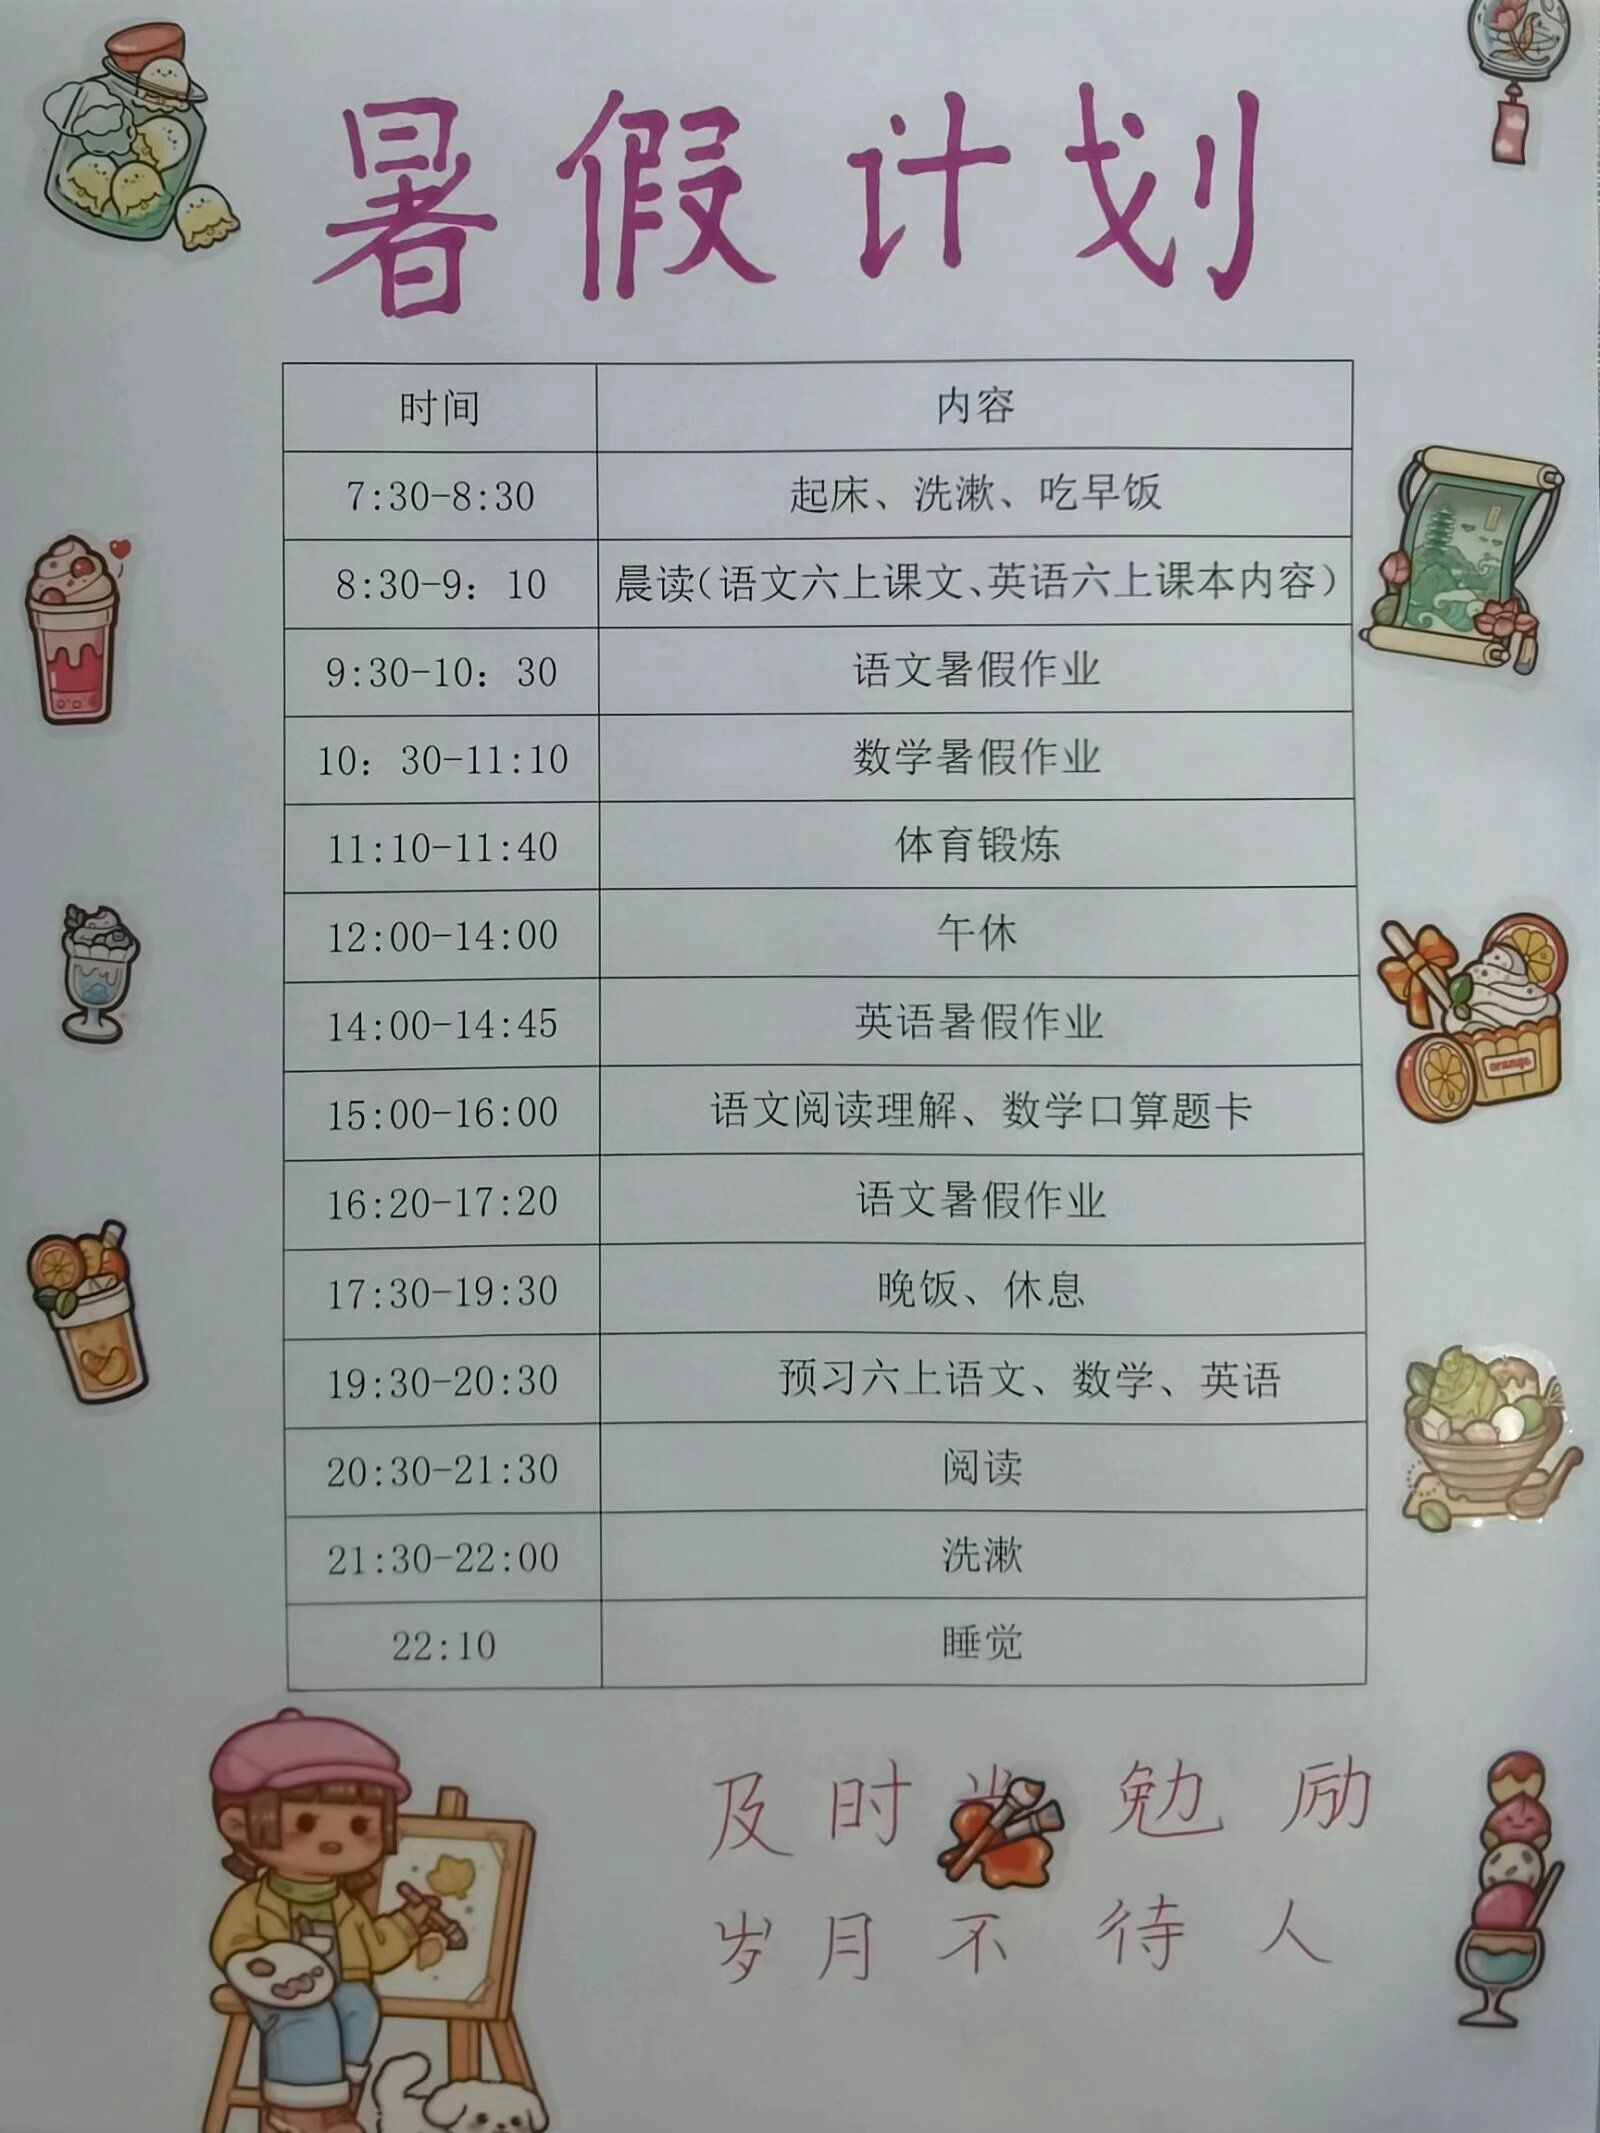 暑假计划
时间 内容
7:30-8:30 起床、洗漱、吃早饭
8:30-9：10 晨读（语文六上课文、英语六上课本内容）
9:30-10：30 语文暑假作业
10：30-11:10 数学暑假作业
11:10-11:40 体育锻炼
12:00-14:00 午休
14:00-14:45 英语暑假作业
15:00-16:00 语文阅读理解、数学口算题卡
16:20-17:20 语文暑假作业
17:30-19:30 晚饭、休息
19:30-20:30 预习六上语文、数学、英语
20:30-21:30 阅读
21:30-22:00 洗漱
22:10 睡觉
orange
及时 勉励
岁月不待人